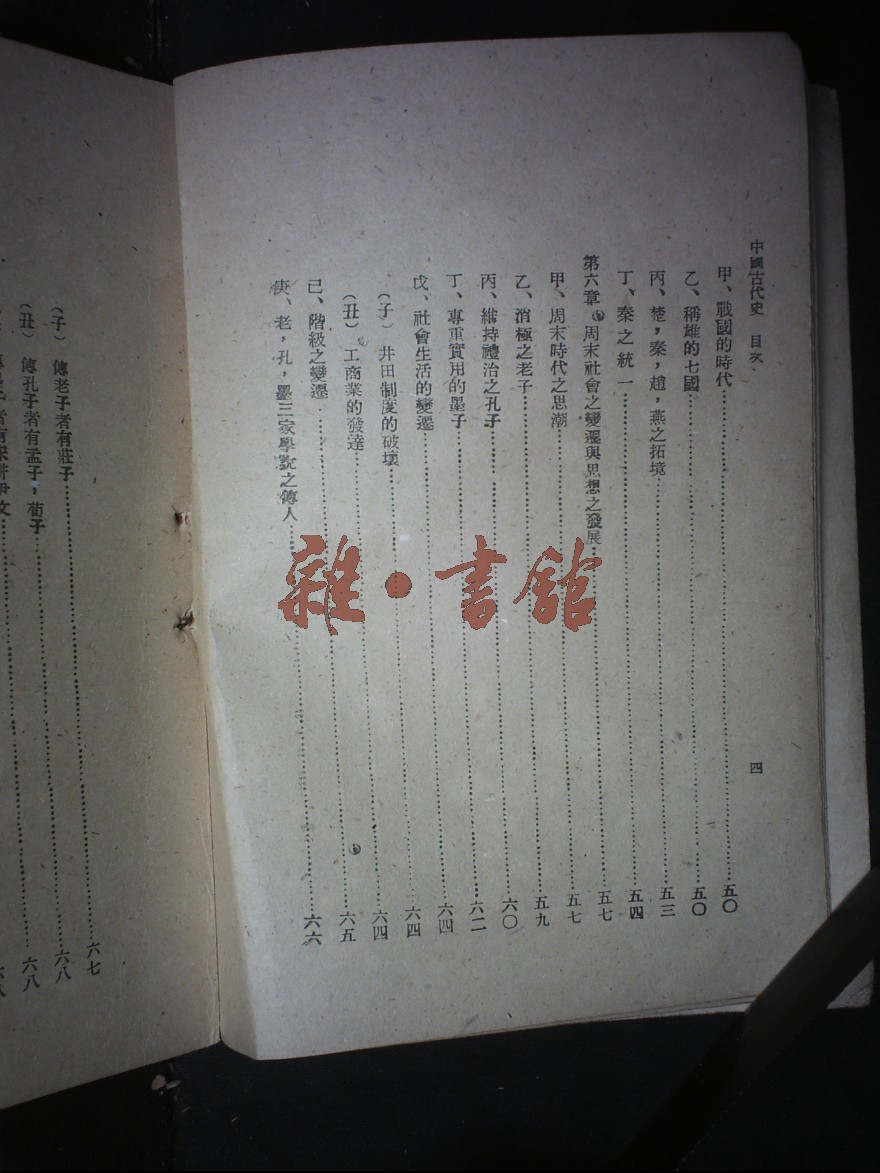 中國古代史　目次
四
甲、戰國的時代……五〇
乙、稱雄的七國……五〇
丙、楚，秦，趙，燕之拓境……五三
丁、秦之統一……五四
第六章　周末社會之變遷與思想之發展……五七
甲、周末時代之思潮……五七
乙、消極之老子……五九
丙、維持禮治之孔子……六〇
丁、專重實用的墨子……六二
戊、社會生活的變遷……六四
（子）井田制度的破壞……六四
（丑）工商業的發達……六四
己、階級之變遷……六五
庚、老，孔，墨三家學說之傳人……六六
（子）傳老子者有莊子……六七
（丑）傳孔子者有孟子，荀子……六八
者有宋鈃尹文……六八
雜·書館